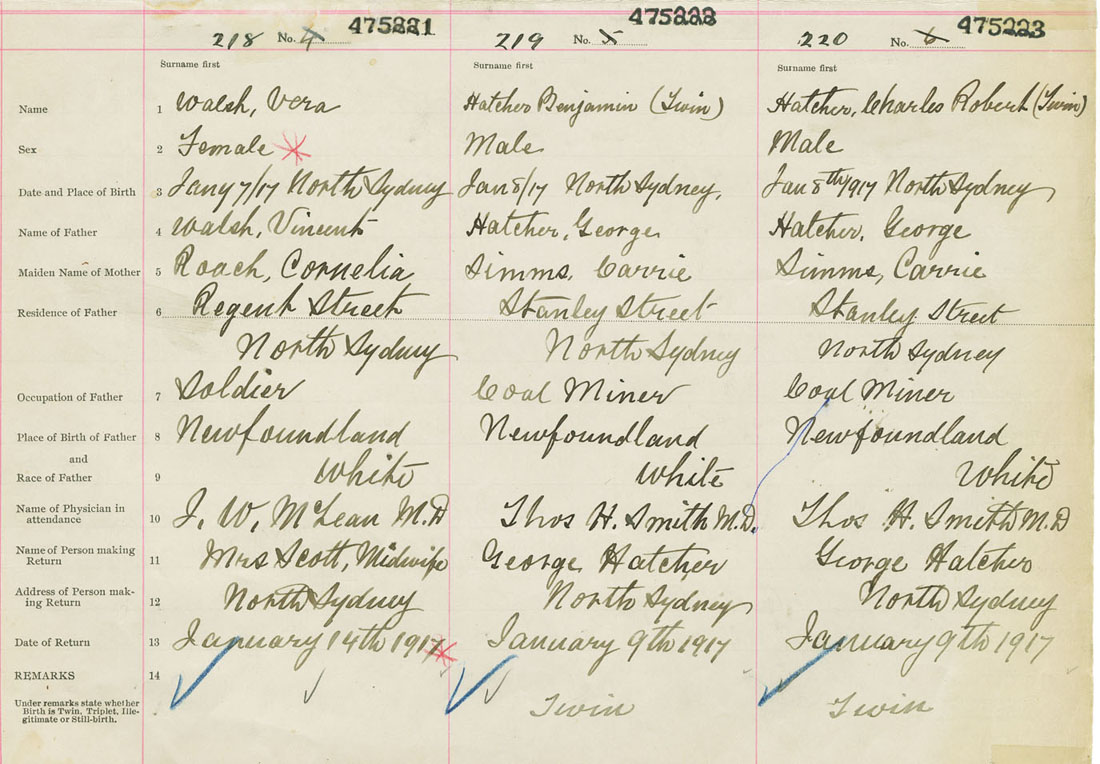 218 No. 4 475221 219 No. 5 475222 220 No. 6 475223
Surname first Surname first Surname first
Name 1 Walsh, Vera Hatcher Benjamin (Twin) Hatcher, Charles Robert (Twin)
Sex 2 Female Male Male
Date and Place of Birth 3 Jany 7/17 North Sydney Jan 8/17 North Sydney, Jan 8th/1917 North Sydney
Name of Father 4 Walsh, Vincent Hatcher, George Hatcher, George
Maiden Name of Mother 5 Roach, Cornelia Simms, Carrie Simms, Carrie
Residence of Father 6 Regent Street Stanley Street Stanley Street
North Sydney North Sydney North Sydney
Occupation of Father 7 Soldier Coal Miner Coal Miner
Place of Birth of Father 8 Newfoundland Newfoundland Newfoundland
and
Race of Father 9 White White White
Name of Physician in attendance 10 J. W. McLean M.D Thos H. Smith M.D. Thos H. Smith M.D
Name of Person making Return 11 Mrs Scott, Midwife George Hatcher George Hatcher
Address of Person mak-
ing Return 12 North Sydney North Sydney North Sydney
Date of Return 13 January 14th 1917 January 9th 1917 January 9th 1917
REMARKS 14
Under remarks state whether
Birth is Twin, Triplet, Ille-
gitimate or Still-birth. Twin Twin